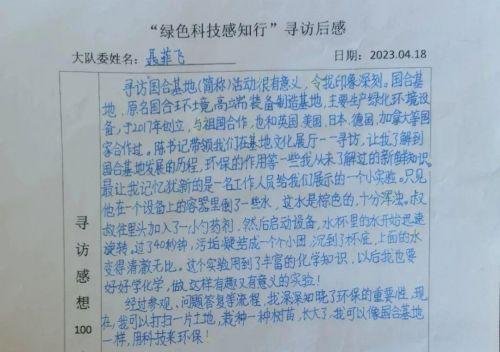 “绿色科技感知行”寻访后感
大队委姓名：聂菲飞 日期：2023.04.18
寻访“国合基地(简称)活动很有意义，令我印象深刻。国合基
地，原名国合环境，高端装备制造基地，主要生产绿化环境设
备，于2017年创立，与祖国合作，也和英国、美国、日本、德国、加拿大等国
家合作过。陈书记带领我们在基地文化展厅一一寻访，让我了解到
国合基地发展的历程，环保的作用等一些我从未了解过的新鲜知识。
最让我记忆犹新的是一名工作人员给我们展示的一个小实验。只见
他在一个设备上的容器里倒了一些水，这水是棕色的，十分浑浊。叔
叔往里头加入了一小勺药剂，然后启动设备，水杯里的水开始迅速
旋转，过了40秒钟，污垢凝结成一个个小团，沉到了杯底，上面的水
变得清澈无比。这个实验用到了丰富的化学知识，以后我也要
好好学化学，做这样有趣又有意义的实验！
经过参观、问题答复等流程，我深深知晓了环保的重要性，现
在，我可以打扫一片土地，栽种一种树苗，长大了，我可以像国合基地
一样，用科技来环保！
寻
访
感
想
100